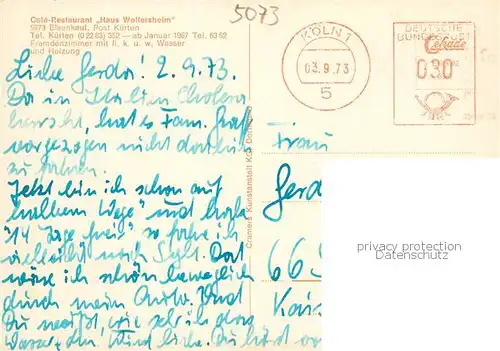 5073
Café-Restaurant „Haus Wolfersheim"
5073 Eisenkaul, Post Kürten
Tel. Kürten (0 22 83) 352 — ab Januar 1967 Tel. 63 52
Fremdenzimmer mit fl. k. u. w. Wasser
und Heizung
KÖLN 1
03.9.73
5
DEUTSCHE
BUNDESPOST
030
Liebe Gerda! 2.9.73.
Da in Italien Cholera
herrscht, hat es Fam.
vorgezogen nicht dorthin
zu fahren.
Jetzt bin ich schon auf
halbem Wege und
"14 Tage frei" so fahre ich
vielleicht nach Sylt. Dort
wäre ich schön beweglich
durch mein Auto. Und
Du weißt, wie sehr ich das
Wasser u. den Wind liebe. Du hörst
Cramers Kunstanstalt KG, Dortmund
Frau
Gerd
66
Kais
privacy protection
Datenschutz